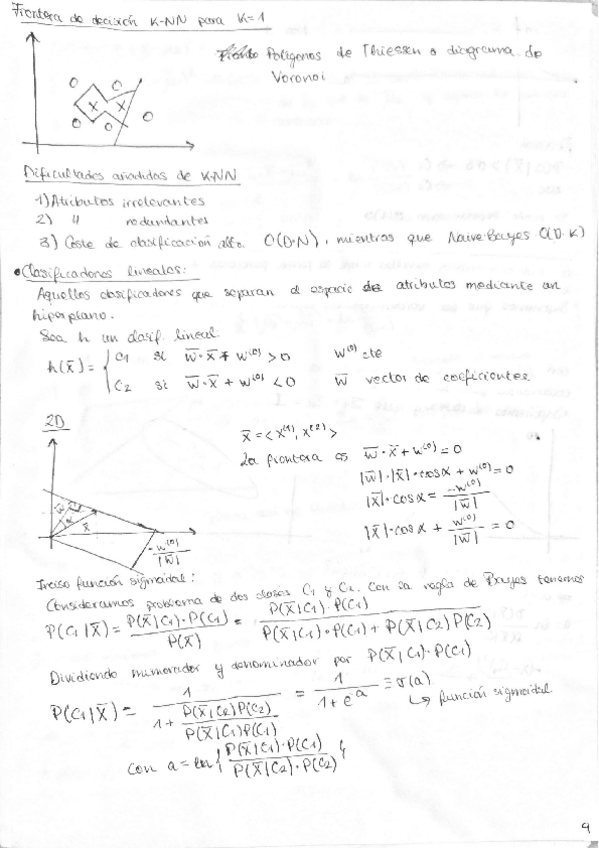 Frontera de decisión K-NN para K=1
Polígonos de Thiessen o diagrama de
Voronoi
Dificultades añadidas de K-NN
1) Atributos irrelevantes
2) " redundantes
3) Coste de clasificación alto. O(D·N), mientras que Naive-Bayes O(D·K)
•Clasificadores lineales:
Aquellos clasificadores que separan el espacio de atributos mediante un
hiperplano.
Sea h un clasif. lineal.
h(x̄) = { C1 si w̄·x̄ + w⁽⁰⁾ > 0 w⁽⁰⁾ cte
C2 si w̄·x̄ + w⁽⁰⁾ < 0 w̄ vector de coeficientes
2D
x̄ = <x⁽¹⁾, x⁽²⁾>
La frontera es w̄·x̄ + w⁽⁰⁾ = 0
|w̄|·|x̄|·cosα + w⁽⁰⁾ = 0
|x̄|·cosα = -w⁽⁰⁾/|w̄|
|x̄|·cosα + w⁽⁰⁾/|w̄| = 0
α
x̄
-w⁽⁰⁾/|w̄|
Inciso función sigmoidal:
Consideramos problema de dos clases C1 y C2. Con la regla de Bayes tenemos
P(C1|x̄) = P(x̄|C1)·P(C1)/P(x̄) = P(x̄|C1)·P(C1)/P(x̄|C1)·P(C1) + P(x̄|C2)P(C2)
Dividiendo numerador y denominador por P(x̄|C1)·P(C1)
P(C1|x̄) = 1/1 + P(x̄|C2)P(C2)/P(x̄|C1)P(C1) = 1/1+e⁻ᵃ ≡ σ(a)
↳ función sigmoidal
con a = ln{P(x̄|C1)·P(C1)/P(x̄|C2)·P(C2)}
9